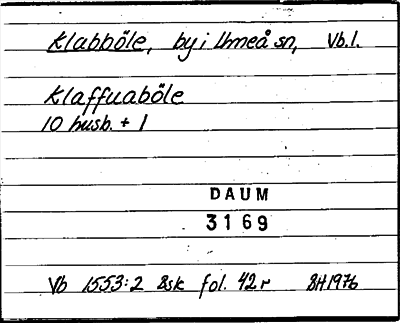 Klabböle, by i Umeå sn, Vb.l.
Klaffuaböle
10 husb. + 1
DAUM
3169
Vb 1553:2 Bsk fol. 42r BH1976